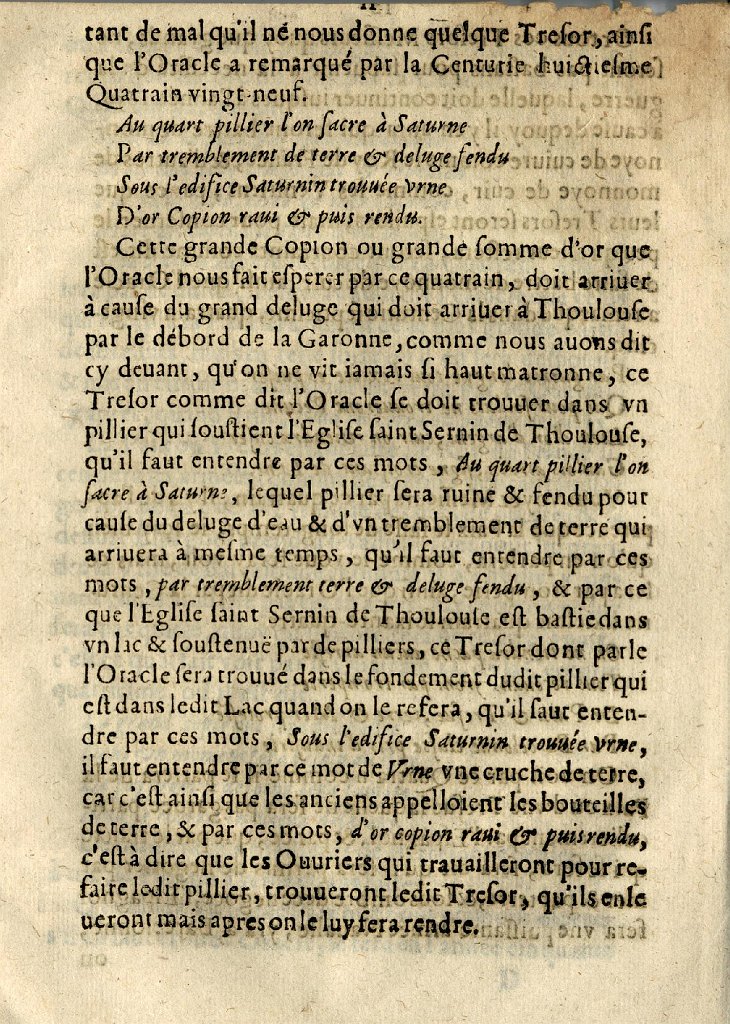 11
tant de mal qu'il ne nous donne quelque Tresor, ainsi
que l'Oracle a remarqué par la Centurie huictiesme
Quatrain vingt-neuf.
Au quart pillier l'on sacre à Saturne
Par tremblement de terre & deluge fendu
Sous l'edifice Saturnin trouuée vrne
D'or Copion raui & puis rendu.
Cette grande Copion ou grande somme d'or que
l'Oracle nous fait esperer par ce quatrain, doit arriuer
à cause du grand deluge qui doit arriuer à Thoulouse
par le débord de la Garonne, comme nous auons dit
cy deuant, qu'on ne vit iamais si haut matronne, ce
Tresor comme dit l'Oracle se doit trouuer dans vn
pillier qui soustient l'Eglise saint Sernin de Thoulouse,
qu'il faut entendre par ces mots, Au quart pillier l'on
sacre à Saturne, lequel pillier sera ruine & fendu pour
cause du deluge d'eau & d'vn tremblement de terre qui
arriuera à mesme temps, qu'il faut entendre par ces
mots, par tremblement terre & deluge fendu, & par ce
que l'Eglise saint Sernin de Thoulouse est bastie dans
vn lac & soustenuë par de pilliers, ce Tresor dont parle
l'Oracle sera trouué dans le fondement dudit pillier qui
est dans ledit Lac quand on le refera, qu'il faut enten-
dre par ces mots, Sous l'edifice Saturnin trouuée vrne,
il faut entendre par ce mot de Vrne vne cruche de terre,
car c'est ainsi que les anciens appelloient les bouteilles
de terre, & par ces mots, d'or copion raui & puis rendu,
c'est à dire que les Ouuriers qui trauailleront pour re-
faire ledit pillier, trouueront ledit Tresor, qu'ils enle
ueront mais apres on le luy fera rendre.